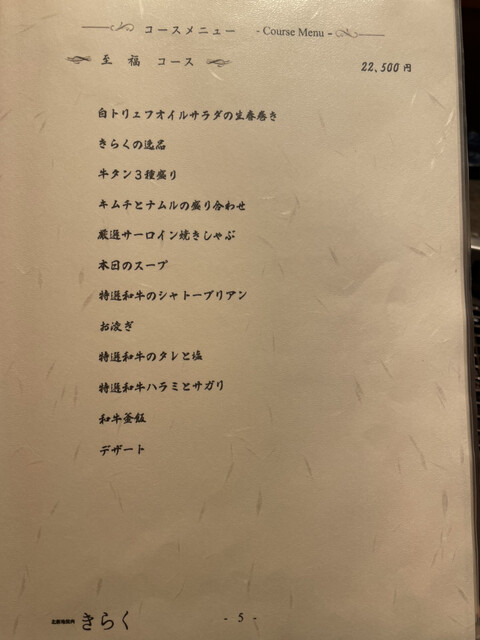 コースメニュー - Course Menu -
至 福 コース
22,500 円
白トリュフオイルサラダの生春巻き
きらくの逸品
牛タン3種盛り
キムチとナムルの盛り合わせ
厳選サーロイン焼きしゃぶ
本日のスープ
特選和牛のシャトーブリアン
お凌ぎ
特選和牛のタレと塩
特選和牛ハラミとサガリ
和牛釜飯
デザート
きらく
- 5 -